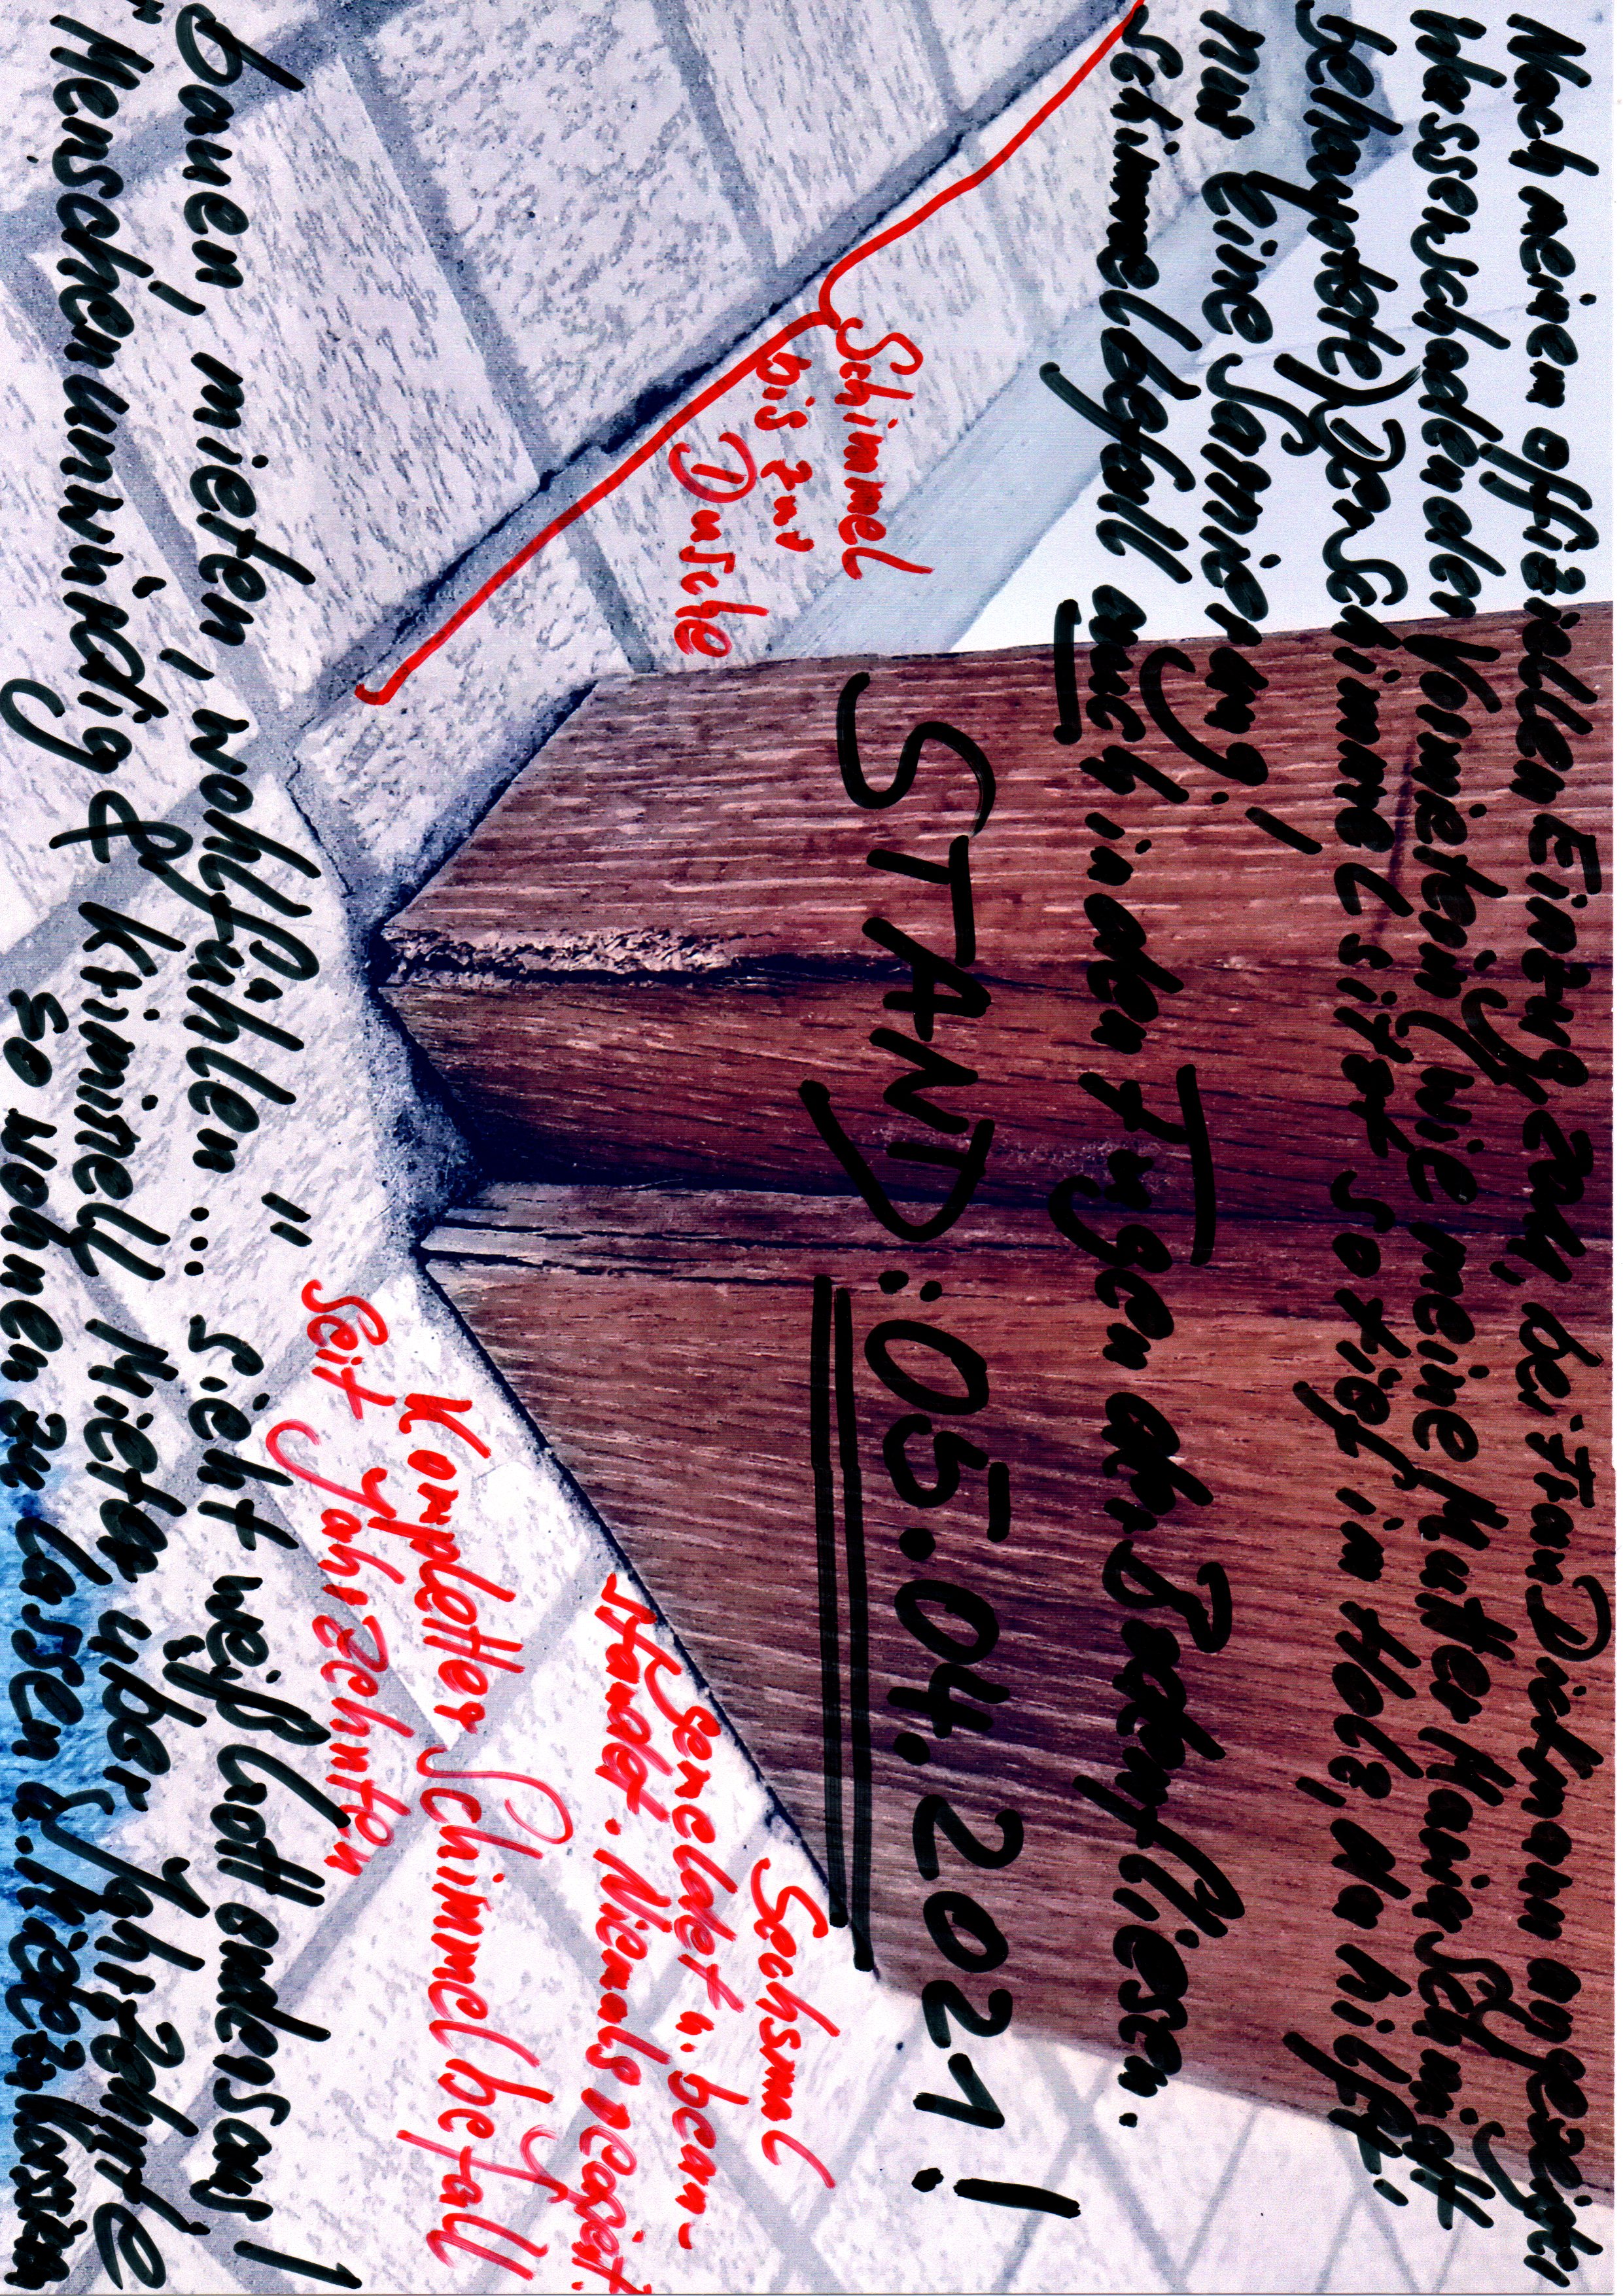 Nach meinem offiziellen Einzug, 2011, bei Frau Dickmann angezeigter
Wasserschaden der Vormieterin (wie meine Mutter Maria Schmidt
behauptete) Der Schimmel sitzt so tief im Holz, da hilft
nur eine Sarnierung!
Schimmelbefall auch in den Fugen der Bodenfliesen.
STAND: 05.04.2021!
Schimmel
bis zur
Dusche
Sechsmal
gemeldet u. bean-
standet. Niemals reagiert.
Kompletter Schimmelbefall
seit Jahrzehnten
bauen, mieten, wohlfühlen"... sieht weiß Gott anders aus!
"Menschenunwürdig & Kriminell Mieter über Jahrzehnte
so wohnen zu lassen u. Miete zu kassieren